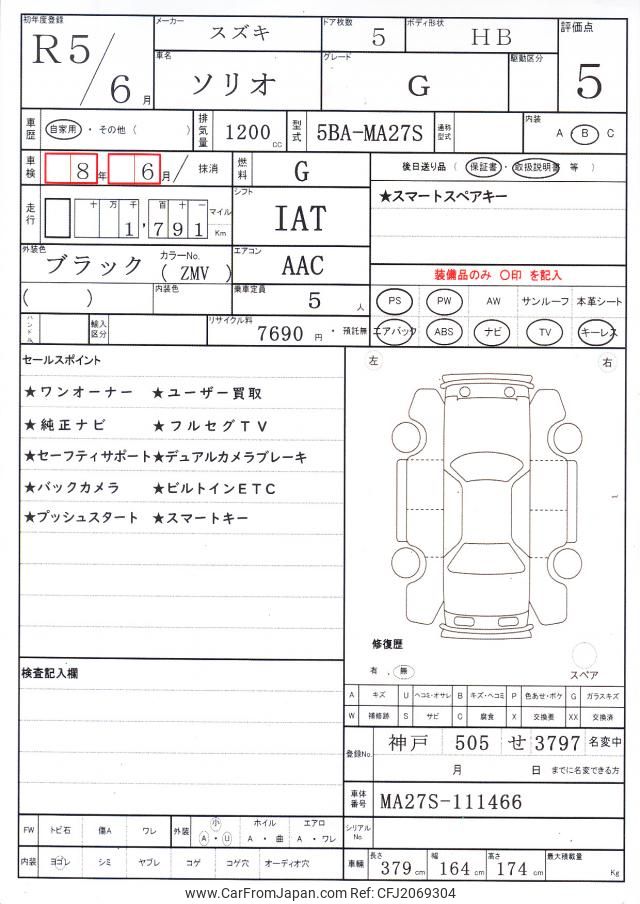 初年度登録 R5/6月
メーカー スズキ
ドア枚数 5
ボディ形状 HB
評価点 5
車名 ソリオ
グレード G
駆動区分
車歴 自家用 ・ その他 ( )
排気量 1200 cc
型式 5BA-MA27S
通称型式
内装 A ・ B ・ C
車検 8年 6月 / 抹消
燃料 G
後日送り品 ( 保証書 ・ 取扱説明書 等 )
★スマートスペアキー
走行 十 万 千 百 十 一 マイル
1,791 Km
シフト IAT
外装色 ブラック カラーNo. ( ZMV )
エアコン AAC
装備品のみ 〇印 を記入
( )
内装色
乗車定員 5 人
PS PW AW サンルーフ 本革シート
ハンドル
輸入区分
リサイクル料 7690 円 ・ 預託無
エアバック ABS ナビ TV キーレス
セールスポイント
★ワンオーナー ★ユーザー買取
★純正ナビ ★フルセグTV
★セーフティサポート★デュアルカメラブレーキ
★バックカメラ ★ビルトインETC
★プッシュスタート ★スマートキー
左 右
修復歴
有 . 無
スペア
検査記入欄
A キズ U ヘコミ・オサレ B キズ・ヘコミ P 色あせ・ボケ G ガラスキズ
W 補修跡 S サビ C 腐食 X 交換要 XX 交換済
登録No. 神戸 505 せ 3797 名変中
月 日 までに名変できる方
車体番号 MA27S-111466
シリアルNo.
FW トビ石 傷A ワレ
外装 小 A ・ U
ホイル A ・ 曲
エアロ A ・ ワレ
内装 ヨゴレ シミ ヤブレ コゲ コゲ穴 オーディオ穴
車輛 長さ 379 cm 幅 164 cm 高さ 174 cm 最大積載量 Kg
www.CarFromJapan.com Ref: CFJ2069304